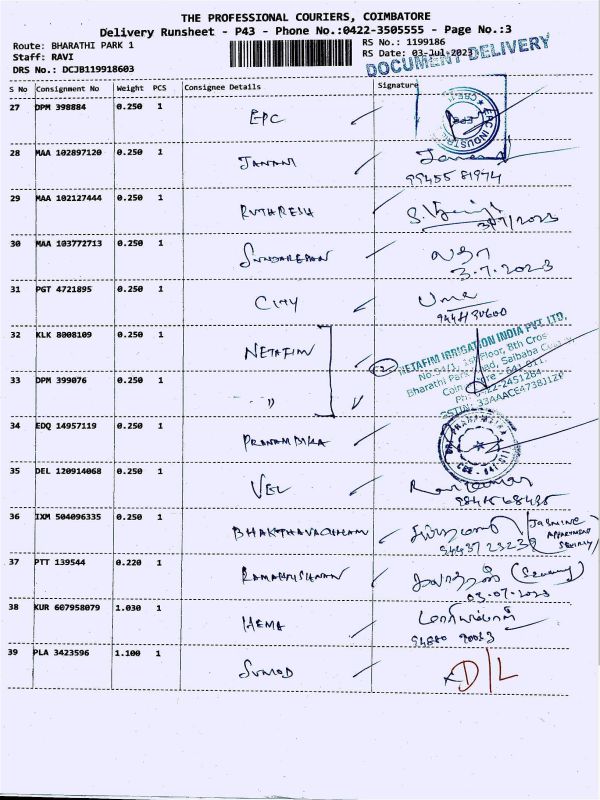 THE PROFESSIONAL COURIERS, COIMBATORE
Delivery Runsheet - P43 - Phone No.:0422-3505555 - Page No.:3
Route: BHARATHI PARK 1 RS No.: 1199186
Staff: RAVI RS Date: 03-Jul-2023
DRS No.: DCJB119918603 DOCUMENT DELIVERY
S No Consignment No Weight PCS Consignee Details Signature
27 DPM 398884 0.250 1 EPC
28 MAA 102897120 0.250 1 JANANI
99455 81974
29 MAA 102127444 0.250 1 RUTHRESH
3/7/2023
30 MAA 103772713 0.250 1
3.7.2023
31 PGT 4721895 0.250 1 CITY Uma
32 KLK 8008109 0.250 1 NETAFIM
NETAFIM IRRIGATION INDIA PVT. LTD.
No.94/1, 1st Floor, 8th Cros
Bharathi Park Road, Saibaba
33 DPM 399076 0.250 1 "
34 EDQ 14957119 0.250 1 PRANAMBIKA
35 DEL 120914068 0.250 1 VEL
36 IXM 504096335 0.250 1 BHAKTHAVACHHAM
JASMINE
APPARTMENT
94437 23239
37 PTT 139544 0.220 1 (Security)
03-07-2023
38 KUR 607958079 1.030 1 HEMA
39 PLA 3423596 1.100 1 D/L